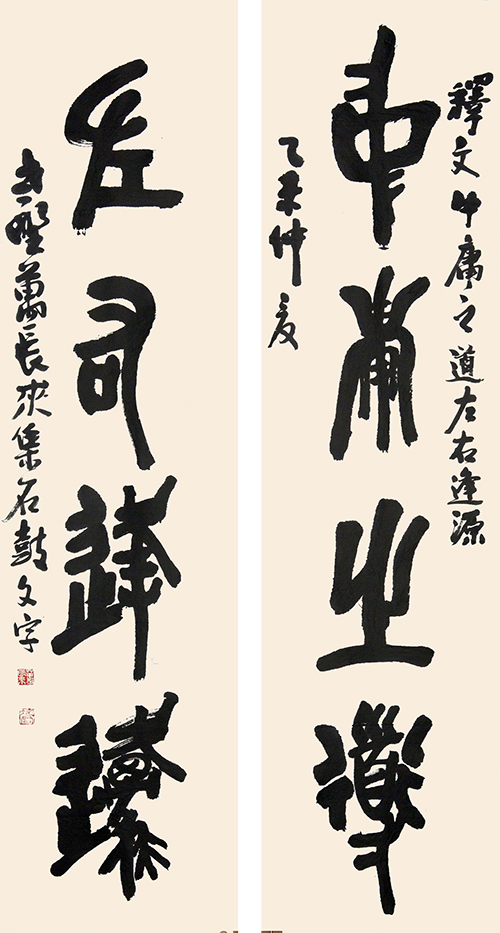 釋文中庸之道左右逢源
中庸之道
乙未仲夏
左右逢邍
萬長來集石鼓文字